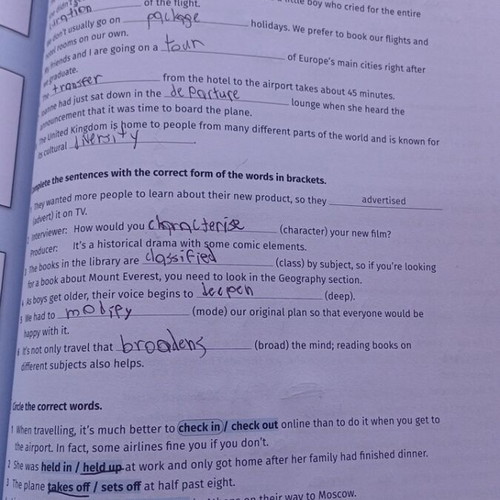 little boy who cried for the entire
duration of the flight.
don't usually go on package holidays. We prefer to book our flights and
rooms on our own.
friends and I are going on a tour of Europe's main cities right after
graduate.
transfer from the hotel to the airport takes about 45 minutes.
had just sat down in the departure lounge when she heard the
announcement that it was time to board the plane.
The United Kingdom is home to people from many different parts of the world and is known for
its cultural diversity
Complete the sentences with the correct form of the words in brackets.
1 They wanted more people to learn about their new product, so they advertised
(advert) it on TV.
2 Interviewer: How would you characterise (character) your new film?
Producer: It's a historical drama with some comic elements.
3 The books in the library are classified (class) by subject, so if you're looking
for a book about Mount Everest, you need to look in the Geography section.
4 As boys get older, their voice begins to deepen (deep).
5 We had to modify (mode) our original plan so that everyone would be
happy with it.
6 It's not only travel that broadens (broad) the mind; reading books on
different subjects also helps.
Circle the correct words.
1 When travelling, it's much better to check in / check out online than to do it when you get to
the airport. In fact, some airlines fine you if you don't.
2 She was held in / held up at work and only got home after her family had finished dinner.
3 The plane takes off / sets off at half past eight.
on their way to Moscow.